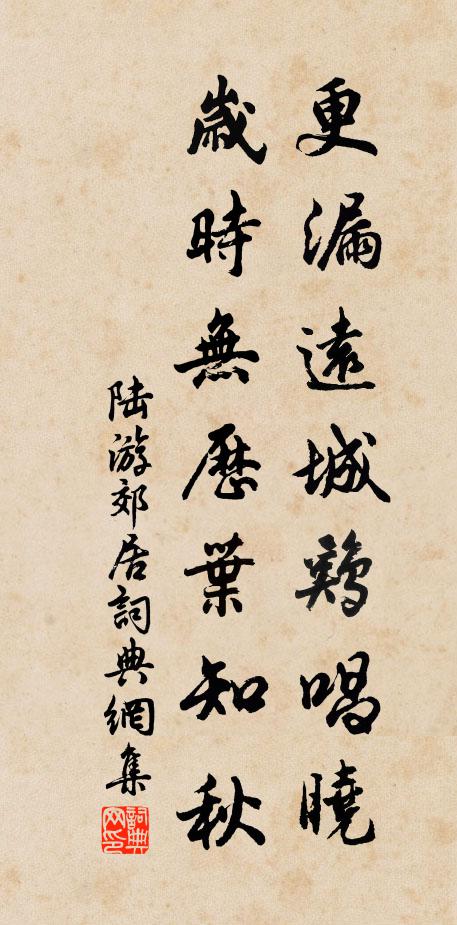 更漏遠城鷄唱曉
歲時無歷葉知秋
陆游郊居詞典網集
詞典网印